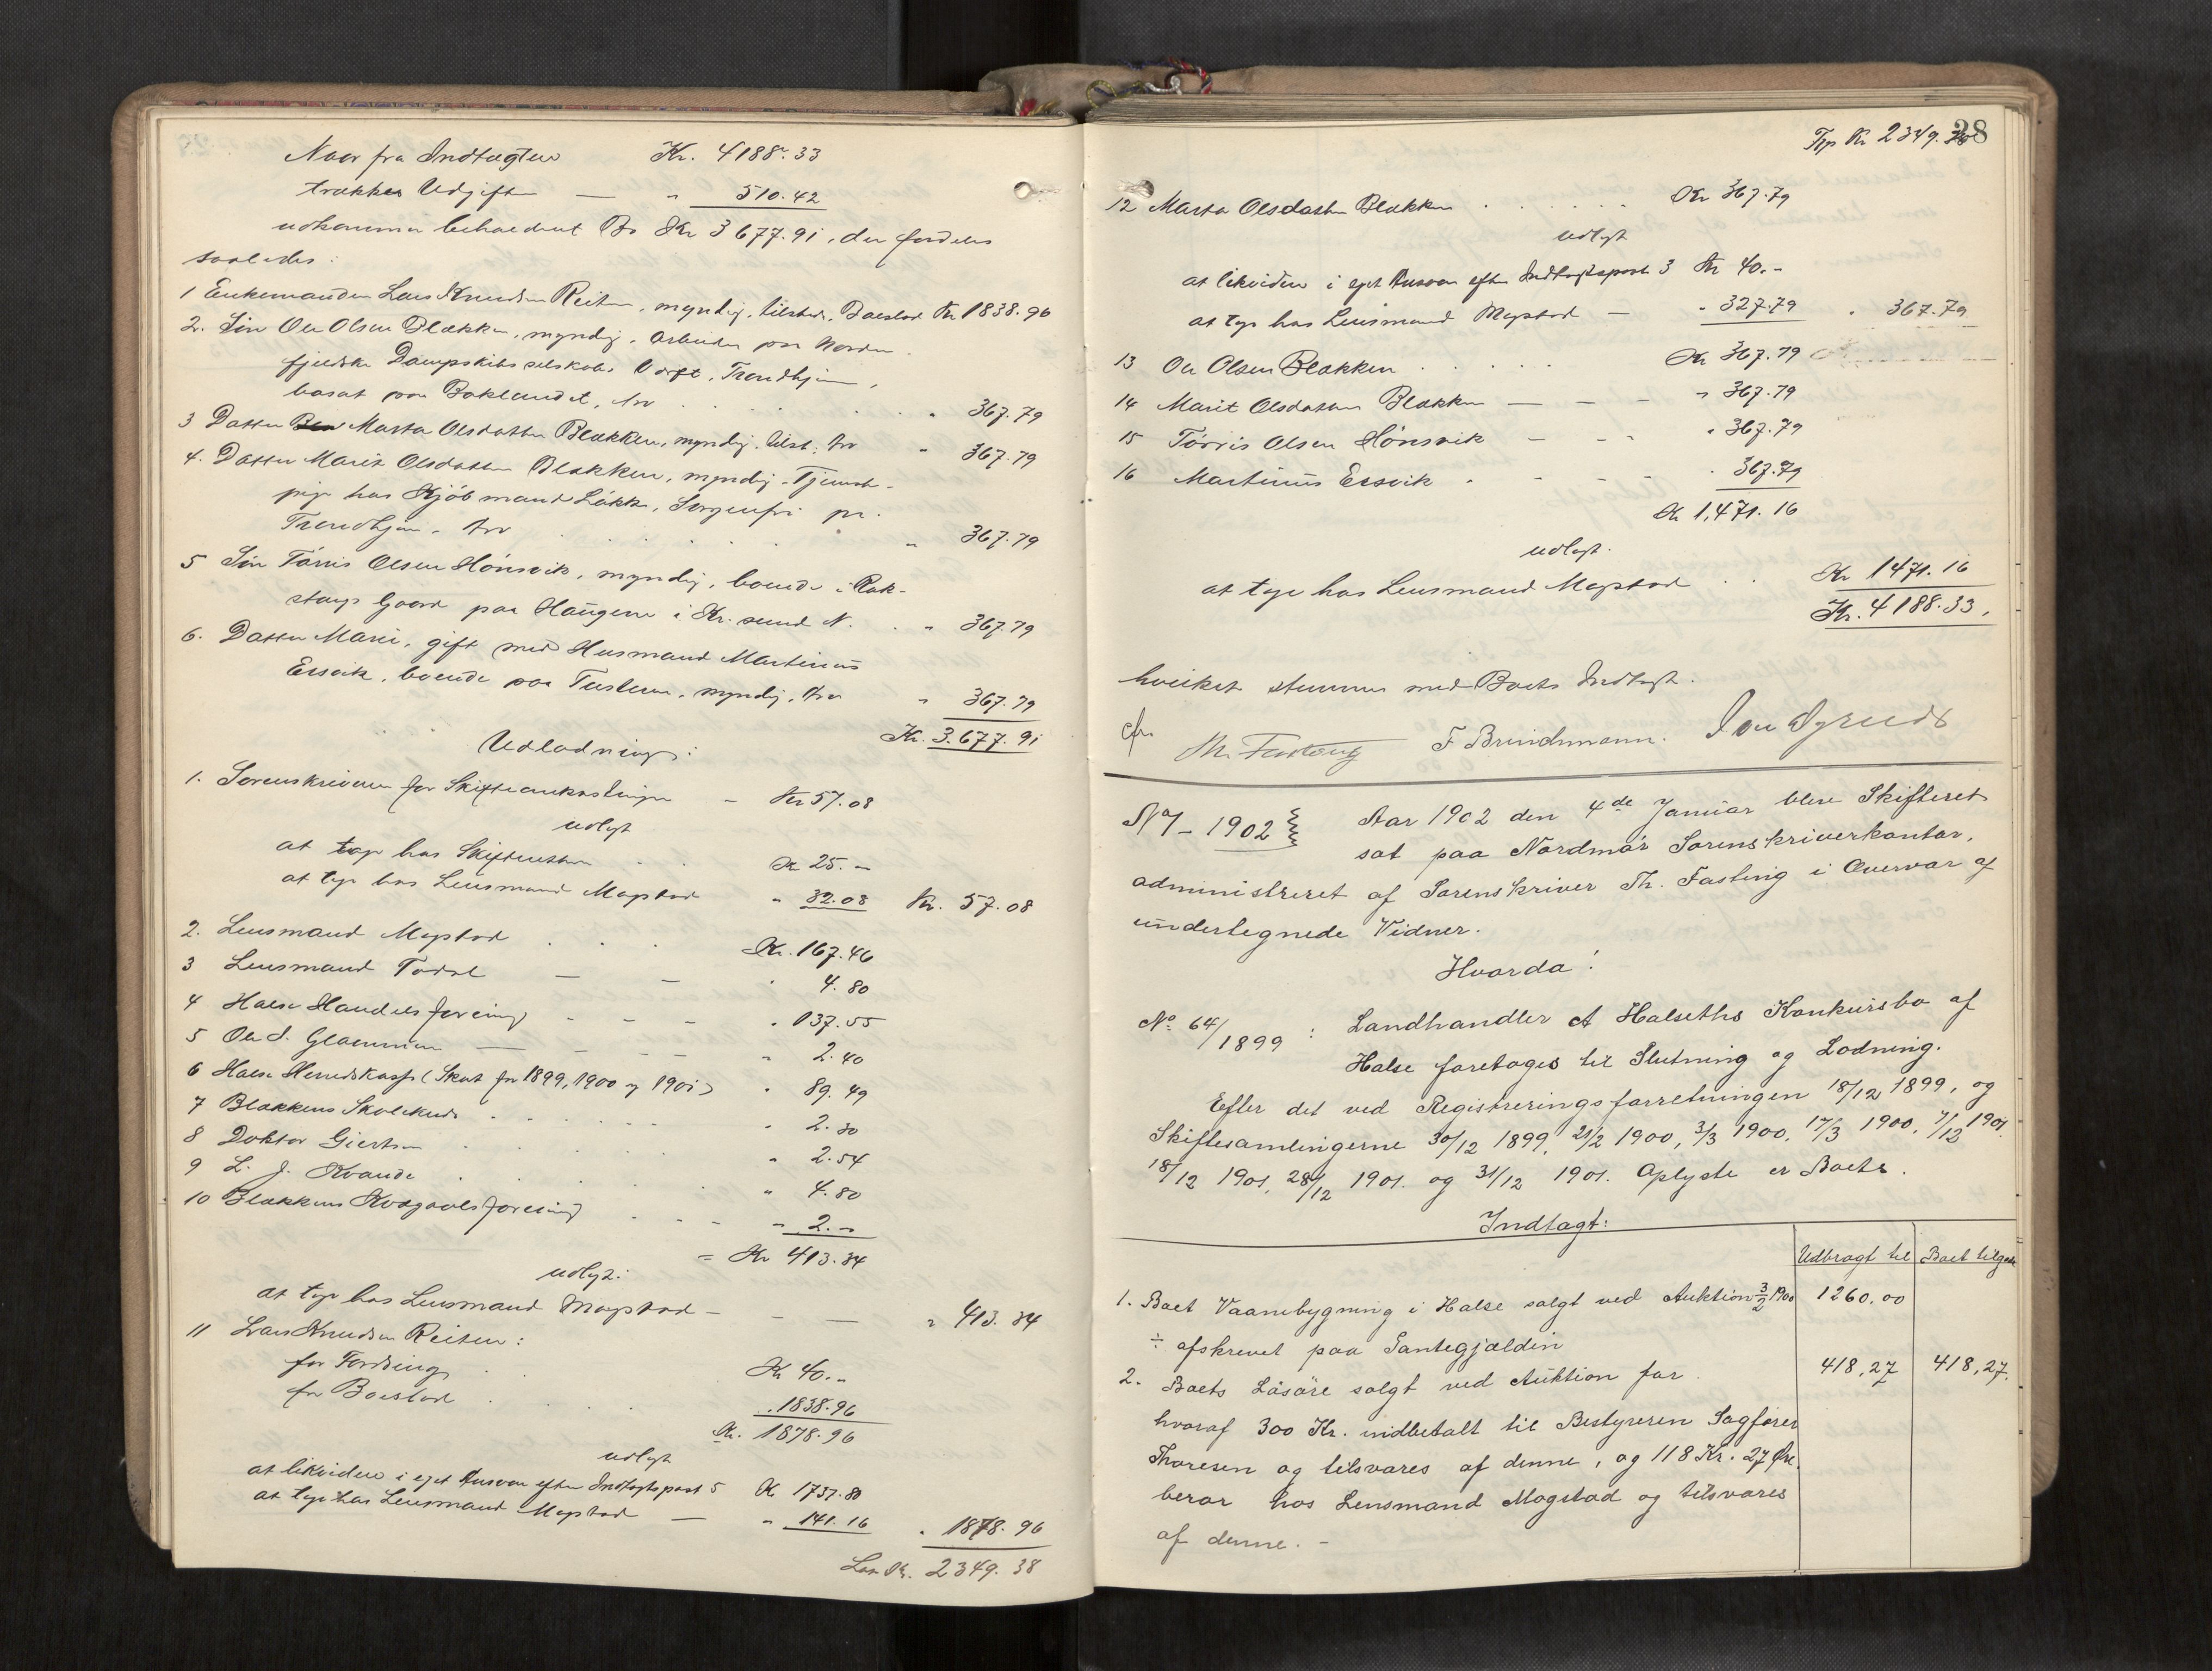 Naar fra Indtægten Kr. 4188.33
trækkes Udgiften — " 510.42
udkommer beholdent Bo Kr 3677.91, der fordeles
saaledes:
1 Enkemanden Lars Knudsen Reiten, myndig, tilstede, Boeslod Kr 1838.96
2. Søn Ole Olsen Blækken, myndig, Arbeider paa Norden-
fjeldske Dampskibsselskabs Værft, Trondhjem,
bosat paa Baklandet, Arv . . . " 367.79
3 Datter Marta Olsdatter Blækken, myndig, tilst., Arv " 367.79
4. Datter Marit Olsdatter Blækken, myndig, Tjeneste-
pige hos Kjöbmand Løkke, Sorgenfri pr.
Trondhjem, Arv . . . " 367.79
5 Søn Törris Olsen Hönsvik, myndig, boende i Rok-
stads Gaard paa Haugene i Kr.sund N. . " 367.79
6. Datter Marie, gift med Husmand Martinus
Ersvik, boende paa Tusteren, myndig, Arv " 367.79
Kr. 3.677.91
Udlodning:
1. Sorenskriveren for Skifteomkostninger — Kr 57.08
udlagt
at tage hos Skifteretten . . Kr 25.–
at tage hos Lensmand Magstad " 32.08 Kr. 57.08
2. Lensmand Magstad . . . Kr. 167.46
3 Lensmand Todal — — " 4.80
4 Halse Handelsforening - - - " 137.55
5 Ole S. Glærum — - - - " 2.40
6 Halse Herredskasse (Skat for 1899, 1900 og 1901) " 89.49
7 Blækkens Skolekreds . . . " 2.30
8 Doktor Giertsen . . . " 2.54
9 L. J. Kvande . . . " 4.80
10 Blækkens Kvægavlsforening . - - - " 2.–
= Kr 413.34
udlagt:
at tage hos Lensmand Magstad — — — " 413.34
11 Lars Knudsen Reiten:
for Fordring . Kr 40.–
for Boeslod . . . . " 1838.96
Kr. 1878.96
udlagt
at likvidere i eget Ansvar efter Indtægtspost 5 Kr 1737.80
at tage hos Lensmand Magstad — " 141.16 " 1878.96
Lat. Kr. 2349.38
28
Trp Kr 2349.38
12 Marta Olsdatter Blækken . . . . . . Kr 367.79
udlagt
at likvidere i eget Ansvar efter Indtægtspost 3 Kr 40.–
at tage hos Lensmand Magstad — " 327.79 " 367.79
13 Ole Olsen Blækken . . . . . Kr 367.79
14 Marit Olsdatter Blækken — — — " 367.79
15 Törris Olsen Hönsvik — - - " 367.79
16 Martinus Ersvik . - - - . 367.79
Kr 1,471.16
udlagt.
at tage hos Lensmand Magstad . . Kr 1471.16
Kr. 4188.33.
hvilket stemmer med Boets Indtægt.
Th. Fasting F Brinchmann.
No 1 - 1902 Aar 1902 den 4de Januar blev Skifteret
sat paa Nordmör Sorenskriverkontor,
administreret af Sorenskriver Th. Fasting i Overvær af
undertegnede Vidner.
Hvorda!
No. 64/1899 : Landhandler A Halseths Konkursbo af
Halse foretages til Slutning og Lodning.
Efter det ved Registreringsforretningen 18/12 1899, og
Skiftesamlingerne 30/12 1899, 21/2 1900, 3/3 1900, 17/3 1900, 7/12 1901.
18/12 1901, 28/12 1901. og 31/12 1901. Oplyste er Boets.
Indtægt:
Udbragt til Boet tilgode
1. Boet Vaanebygning i Halse solgt ved Auktion 3/2 1900 1260.00
÷ afskrevet paa Pantegjælden
2. Boets Lösöre solgt ved Auktion for . 418,27 418,27.
hvoraf 300 Kr. indbetalt til Bestyreren Sagförer
Thoresen og tilsvares af denne, og 118 Kr. 27 Øre.
beror hos Lensmand Magstad og tilsvares
af denne. –